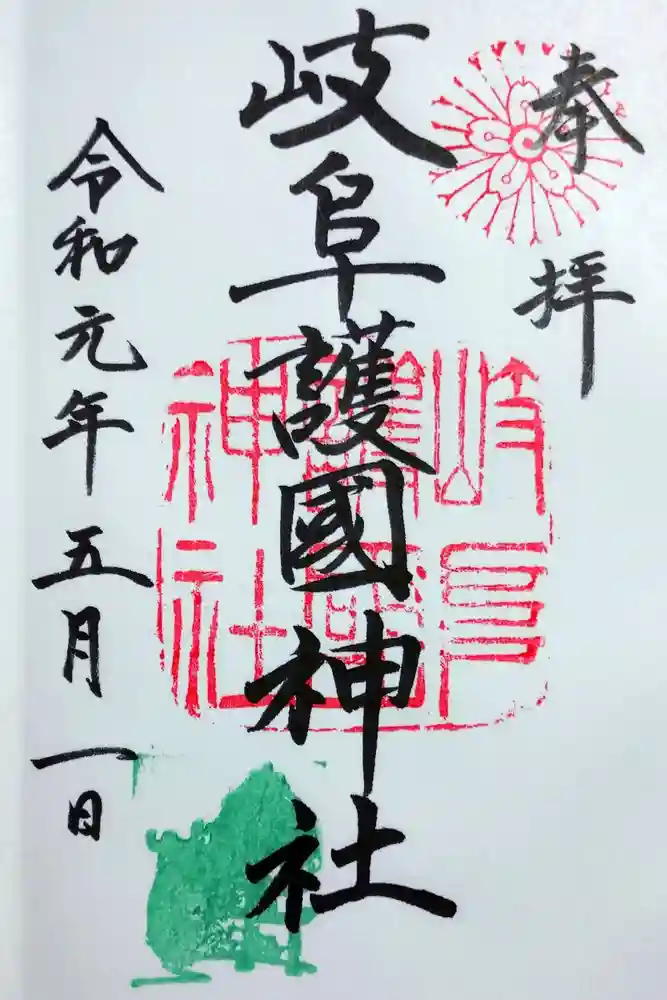 奉拝
岐阜護國神社
令和元年五月一日
岐阜
護國
神社